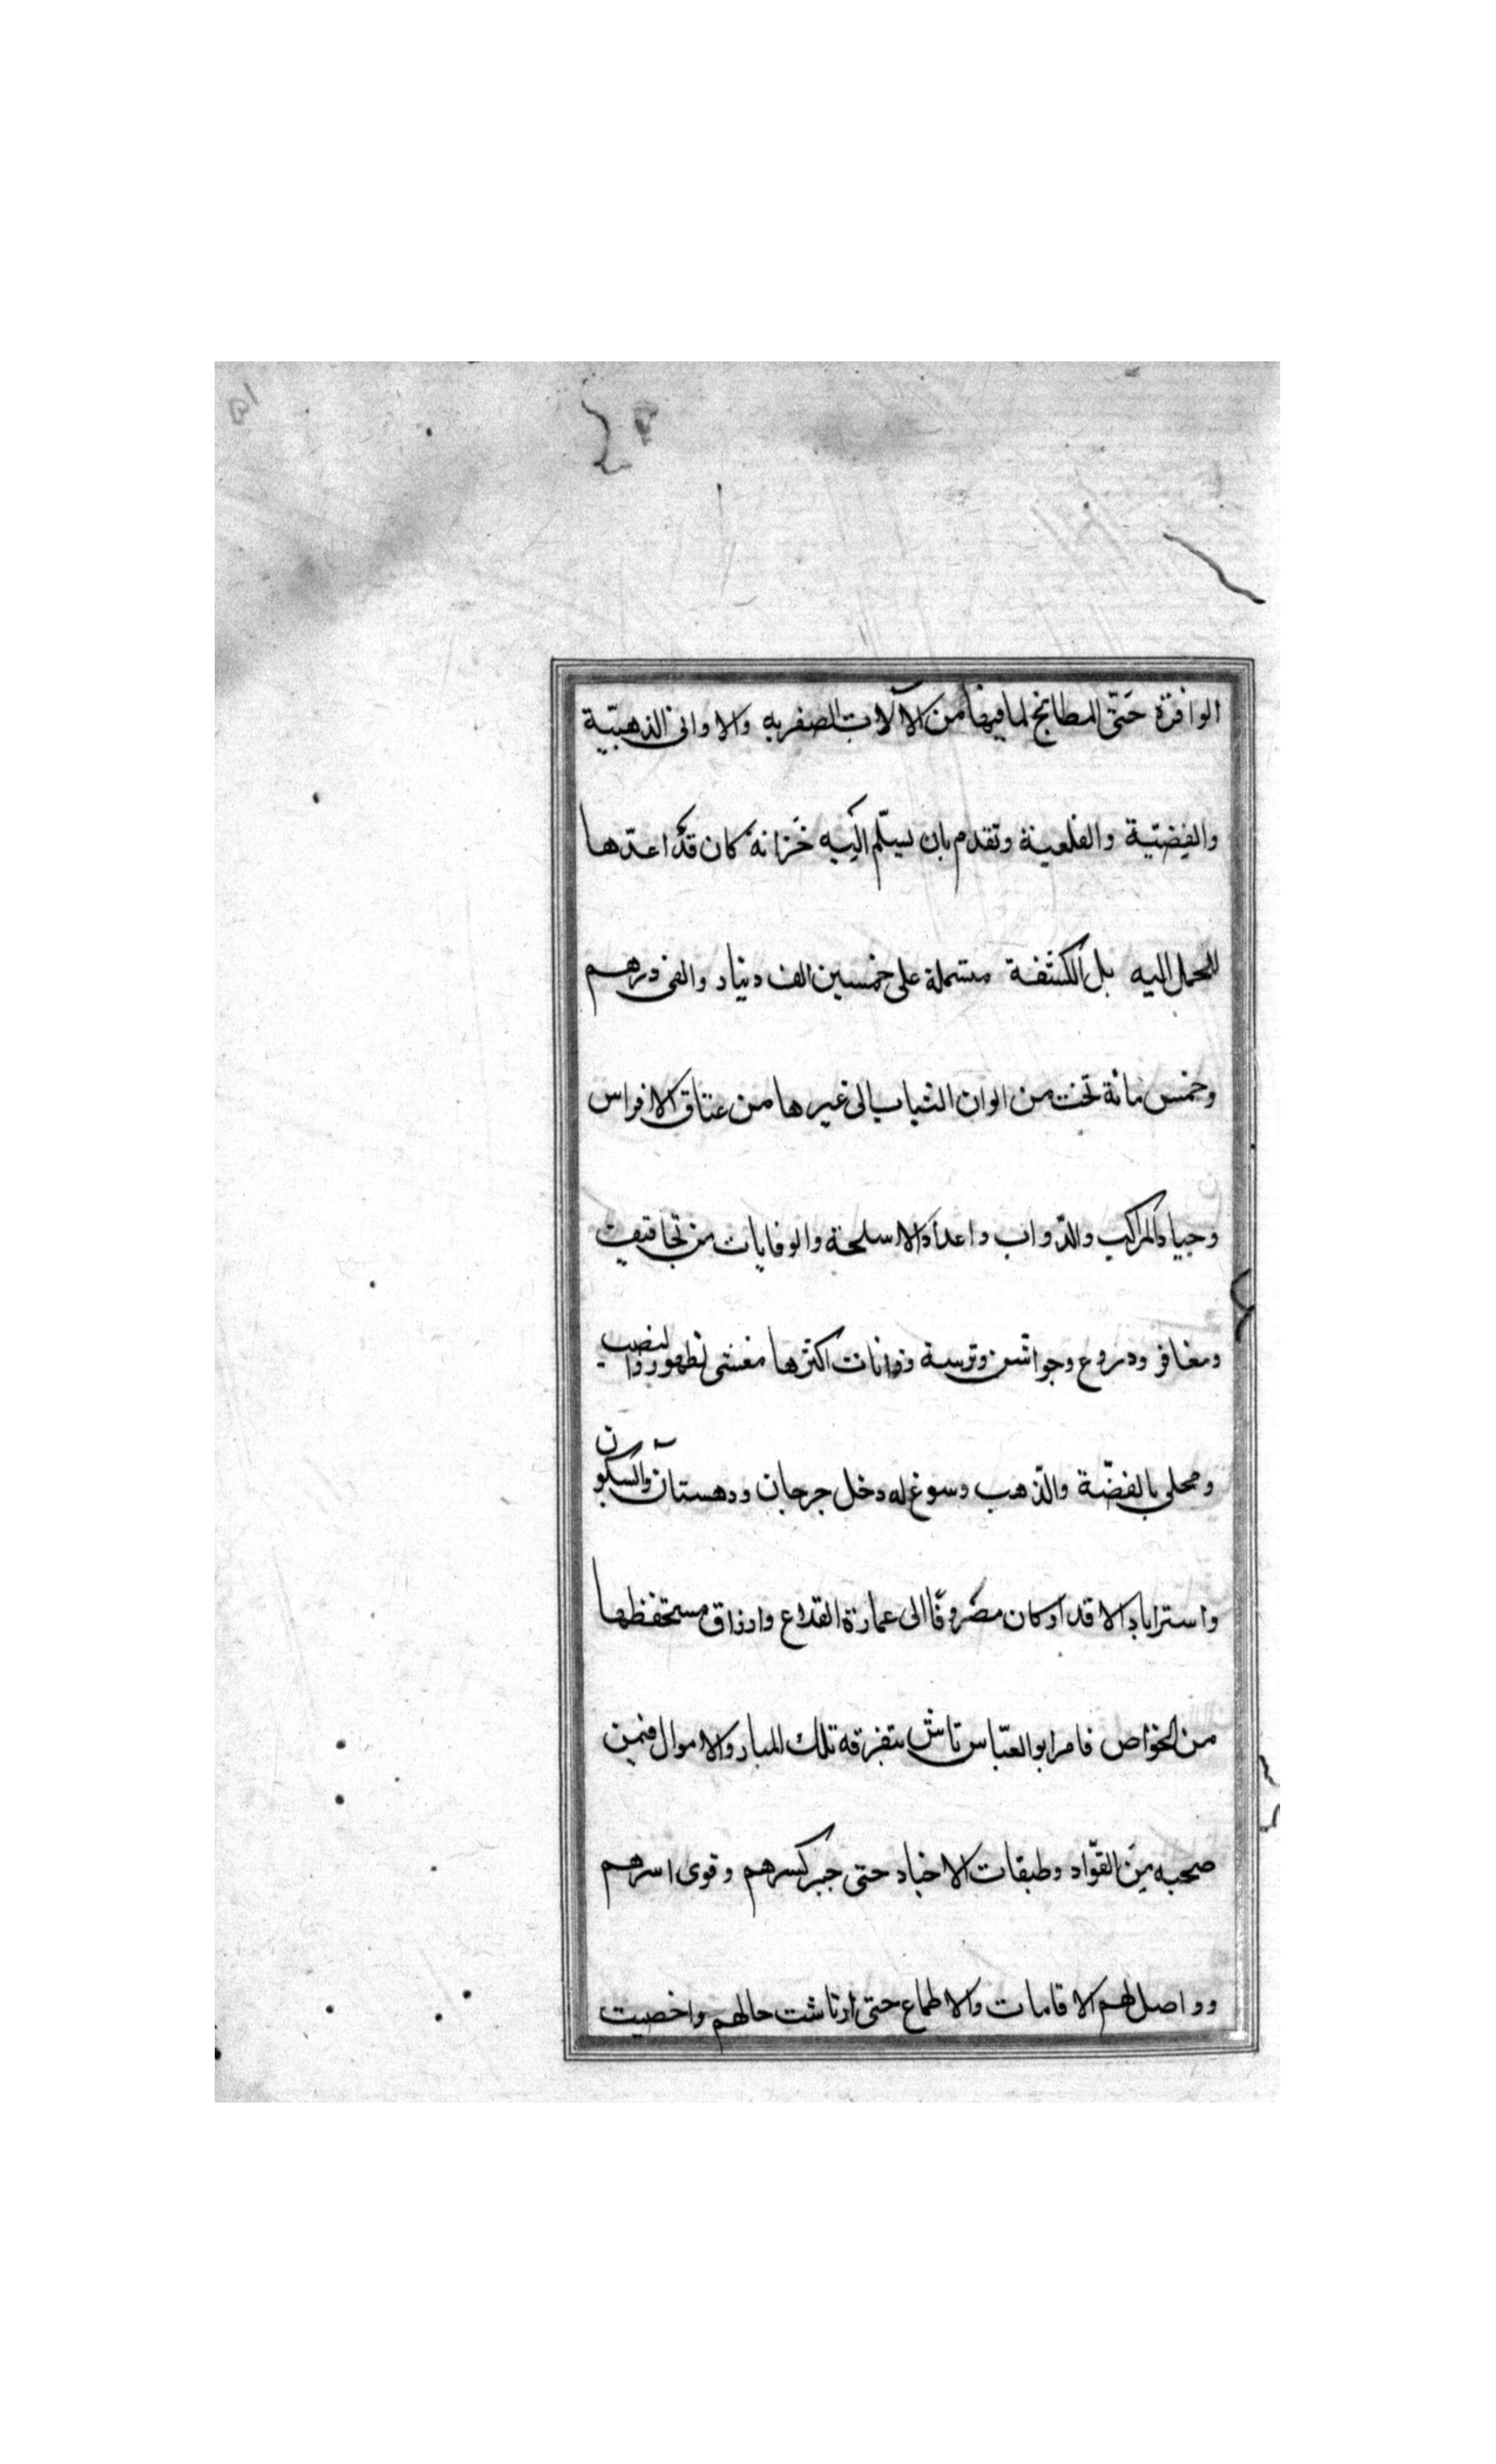 الوافرة حَتّى المطابخ لما فيها من الآلات الصفريه والاوانى الذهبيّة
والفِضّتية والقلعية وتقدم بان يسلّم اليه خزانة كان قد اعدّها
للحمل اليه بل الكشفة مشتملة على خمسين الف دينار والفى درهم
وخمس مائة تخت من الوان الثياب الى غيرها من عتاق الافراس
وجياد المراكب والدّواب واعداد الاسلحة والوقايات من تجافيف
ومغافر ودروع وجواشن وترسة وزانات اكثرها مغشى لظهور والنصب
ومحلى بالفضّة والذّهب وسوغ له دخل جرجان ودهستان وآبسكون
واستراباد الا قدرا وكان مصروفًا الى عمارة القلاع وارزاق مستحفظها
من الخواص فامر ابو العبّاس تاش بتفرقه تلك المبار والاموال فيمن
صحبه مِنَ القوّاد وطبقات الاجناد حتى جبر كسرهم وقوى اسرهم
وواصل لهم الاقامات والاطماع حتى ارتاشت حالهم واخصبت